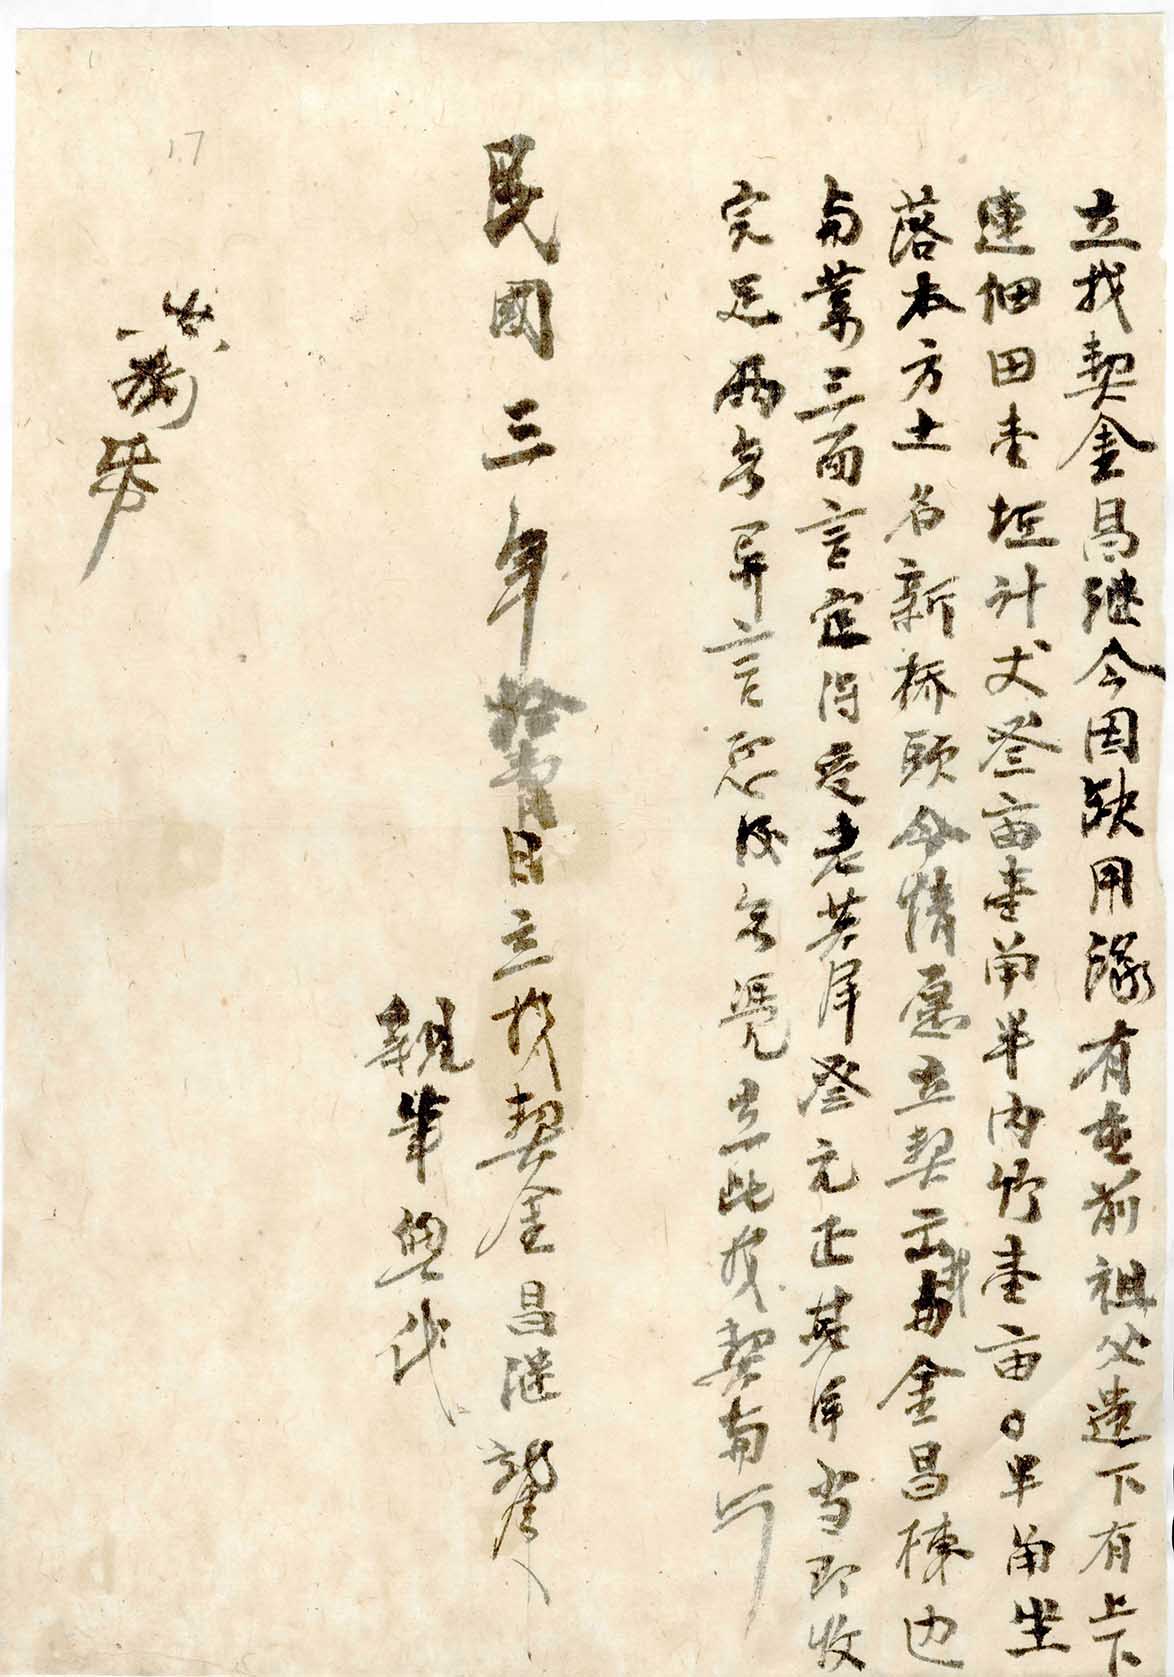 立找契金昌继今因缺用缘有在前祖父遗下有上下
連佃田壹坵计丈叁亩壹角半内竹壹亩〇半角坐
落本方土名新桥頭今情愿立契出找与金昌棟边
为業三面言定得受老英洋叁元正其洋当即收
完足两无异言恐後无凭立此找契为
民國三年拾壹月日立找契金昌继
親筆無代
17